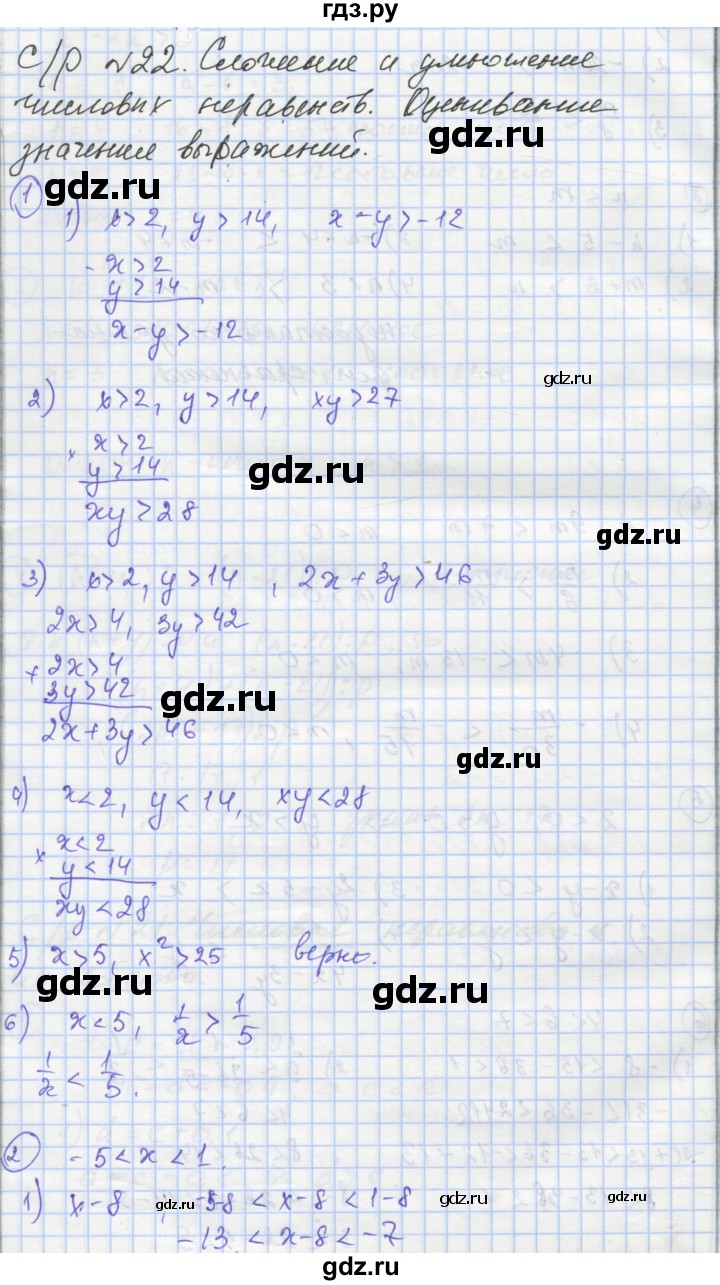 гдз.ру
С/р №22. Сложение и умножение
числових неравенств. Оценивание
значение выражений.
gdz.ru gdz.ru
1
1) x>2, y>14, x-y>-12
- x>2
y>14
x-y>-12
gdz.ru
2) x>2, y>14, xy>27
× x>2
y>14
gdz.ru
xy>28
gdz.ru
3) x>2, y>14, 2x+3y>46
2x>4, 3y>42
+ 2x>4
3y>42
gdz.ru
2x+3y>46
gdz.ru
4) x<2, y<14, xy<28
× x<2
y<14
xy<28
5) x>5, x²>25 верно.
gdz.ru gdz.ru
6) x<5, 1/x > 1/5
1/x < 1/5.
2 -5<x<1.
1) x-8 gdz.ru -5-8 < x-8 < 1-8 gdz.ru
-13 < x-8 < -7
gdz.ru